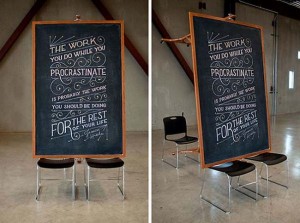 THE WORK
YOU DO WHILE YOU
PROCRASTINATE
IS PROBABLY THE WORK
YOU SHOULD BE DOING
FOR THE REST
OF YOUR LIFE
THE WORK
YOU DO WHILE YOU
PROCRASTINATE
IS PROBABLY THE WORK
YOU SHOULD BE DOING
FOR THE REST
OF YOUR LIFE